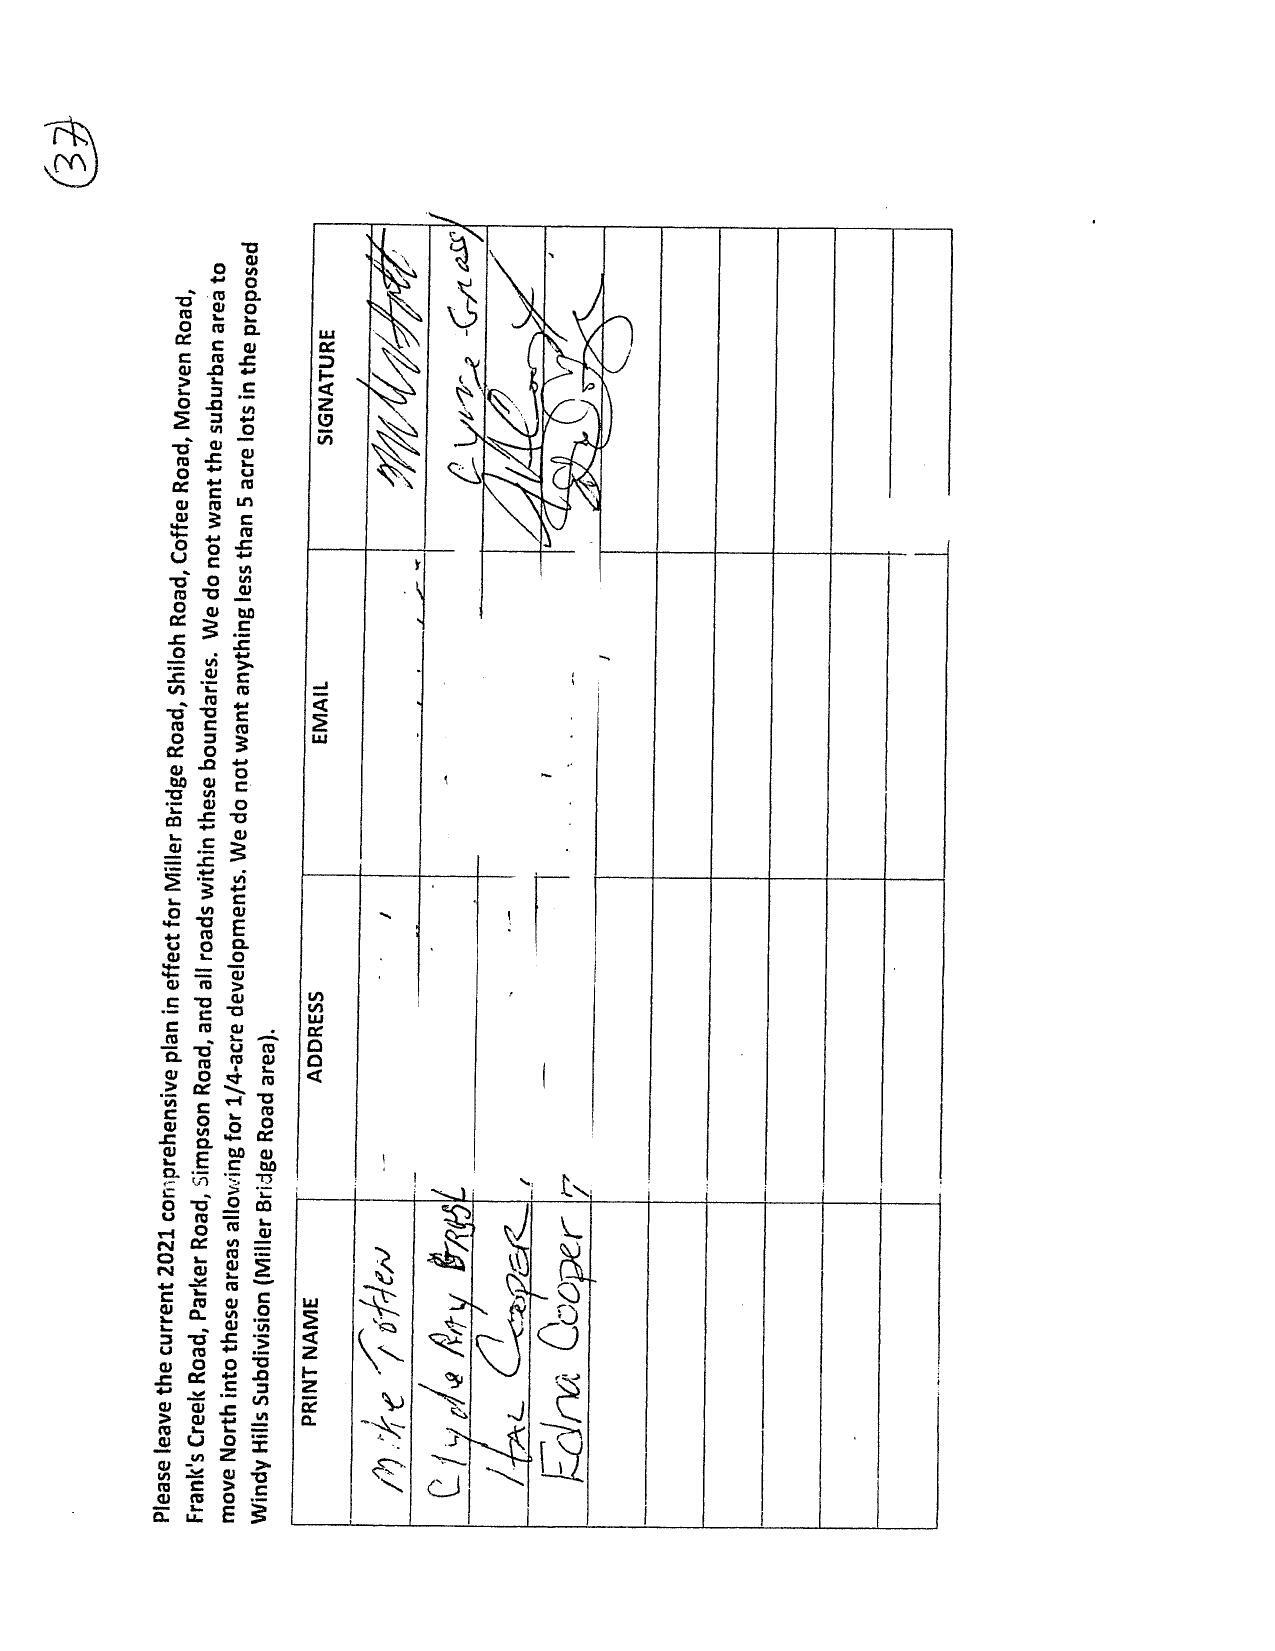 (37)
Please leave the current 2021 comprehensive plan in effect for Miller Bridge Road, Shiloh Road, Coffee Road, Morven Road,
Frank's Creek Road, Parker Road, Simpson Road, and all roads within these boundaries. We do not want the suburban area to
move North into these areas allowing for 1/4-acre developments. We do not want anything less than 5 acre lots in the proposed
Windy Hills Subdivision (Miller Bridge Road area).
PRINT NAME ADDRESS EMAIL SIGNATURE
Mike Totten
Clyde Ray
HAL COOPER
Edna Cooper